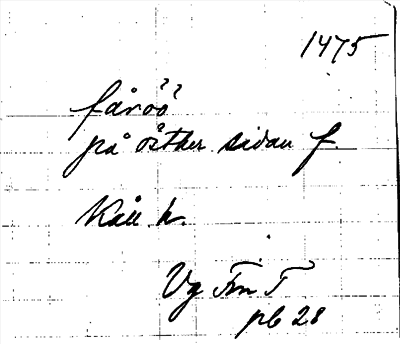 1475
fåröö
på östher sidan f.
Kåll h.
Vg Fm T
pb 28